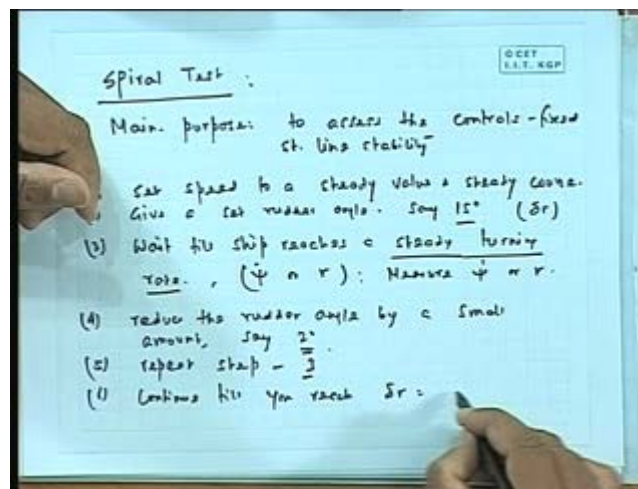 © CET
I.I.T. KGP
Spiral Test :
Main purpose: to assess the controls-fixed
st. line stability
Set speed to a steady value & steady course.
Give a set rudder angle. Say 15° (δr)
(3) Wait till ship reaches a steady turning
rate. , (ψ̇ or r) : Measure ψ̇ or r.
(4) reduce the rudder angle by a small
amount, say 2°.
(5) repeat step - 3
(6) Continue till you reach δr =